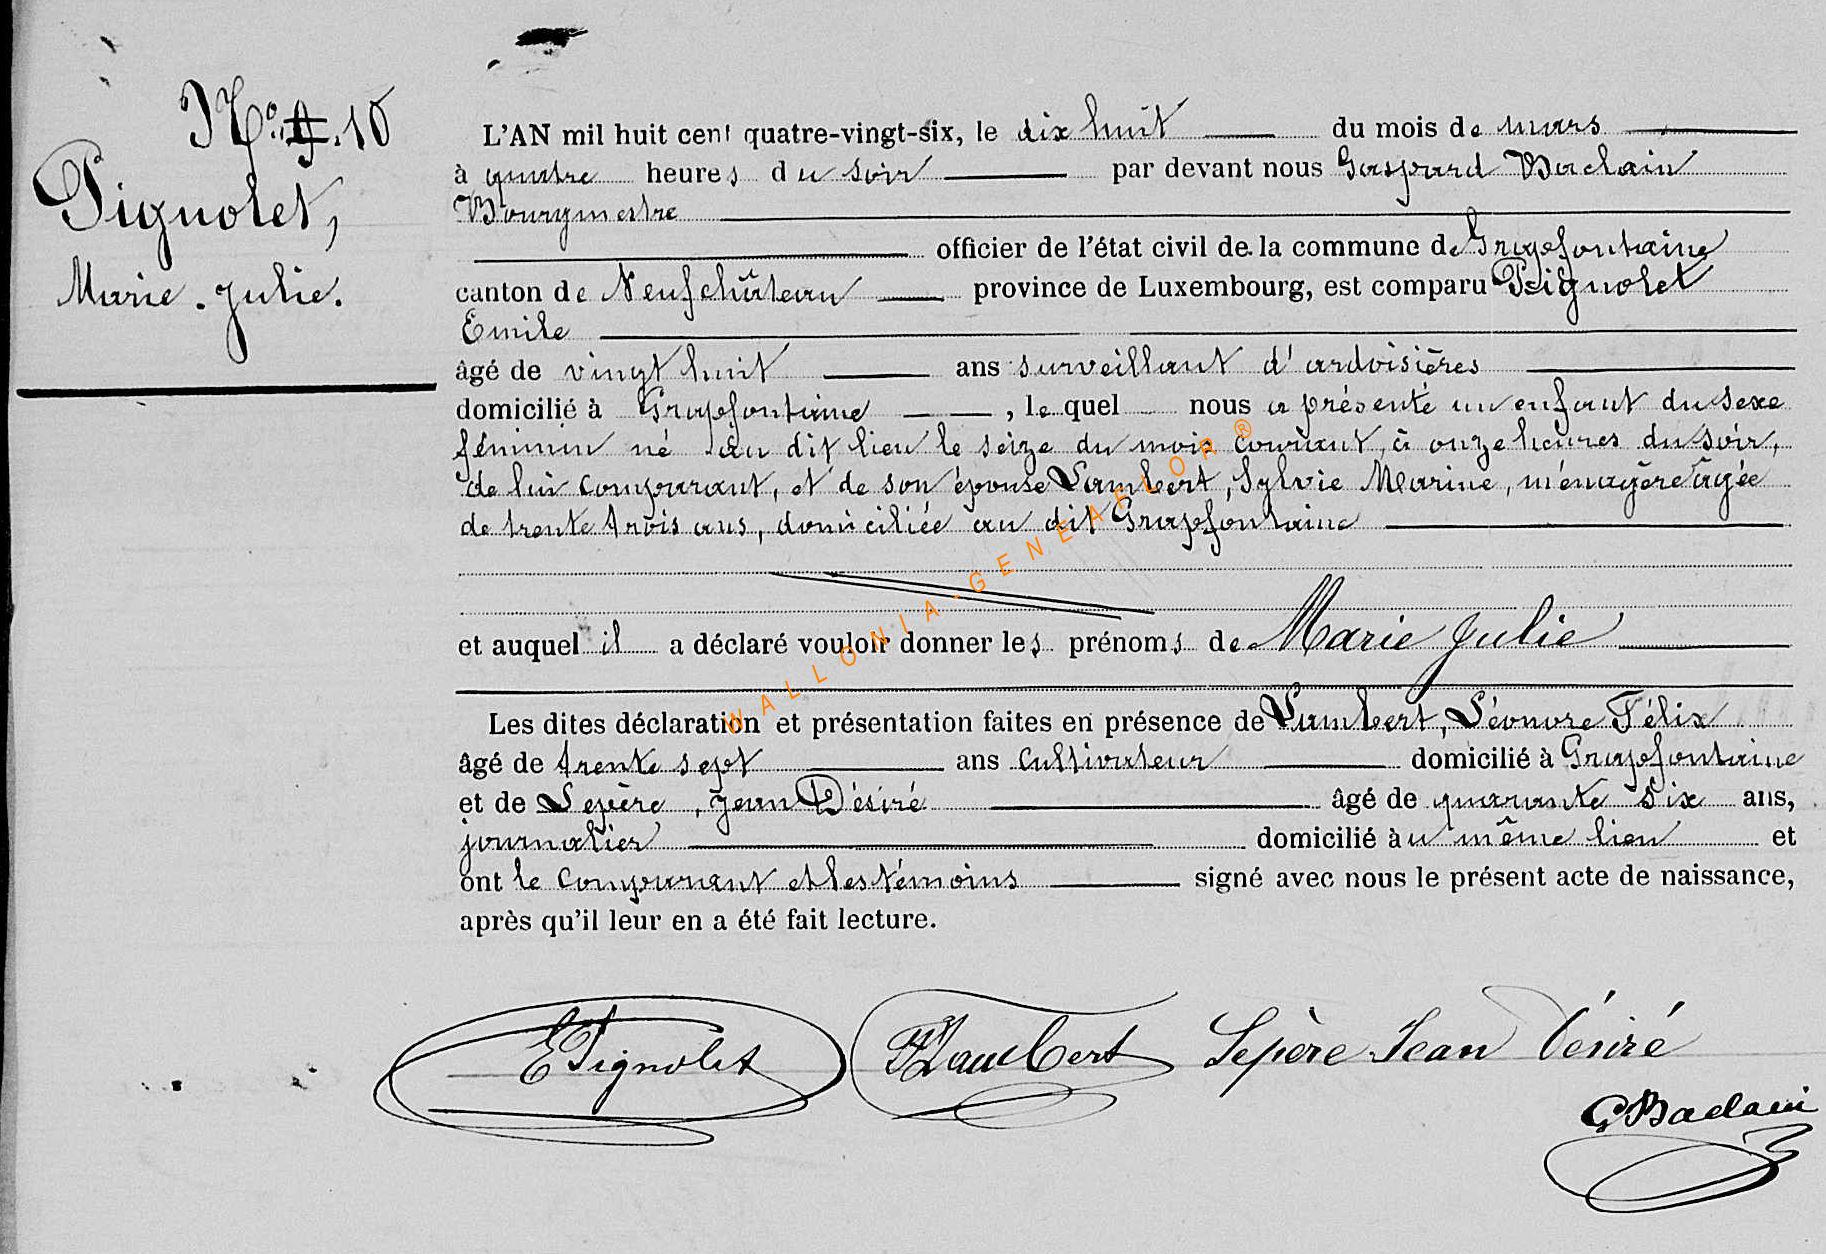 N.º 9. 10
Pignolet,
Marie-Julie.
L'AN mil huit cent quatre-vingt-six, le dix huit du mois de mars
à quatre heures du soir par devant nous Gaspard Baclain
Bourgmestre
officier de l'état civil de la commune de Grapfontaine
canton de Neufchâteau province de Luxembourg, est comparu Pignolet
Emile
âgé de vingt huit ans surveillant d'ardoisières
domicilié à Grapfontaine , le quel nous a présenté un enfant du sexe
féminin né au dit lieu le seize du mois courant, à onze heures du soir,
de lui comparant, et de son épouse Lambert, Sylvie Marine, ménagère âgée
de trente trois ans, domiciliée au dit Grapfontaine
et auquel il a déclaré vouloir donner les prénoms de Marie Julie
Les dites déclaration et présentation faites en présence de Lambert, Léonore Félix
âgé de trente sept ans cultivateur domicilié à Grapfontaine
et de Lepère, Jean Désiré âgé de quarante six ans,
journalier domicilié au même lieu et
ont le comparant et les témoins signé avec nous le présent acte de naissance,
après qu'il leur en a été fait lecture.
EPignolet FLambert Lepère Jean Désiré
GBaclain
WALLONIA-GENEAFLOR®